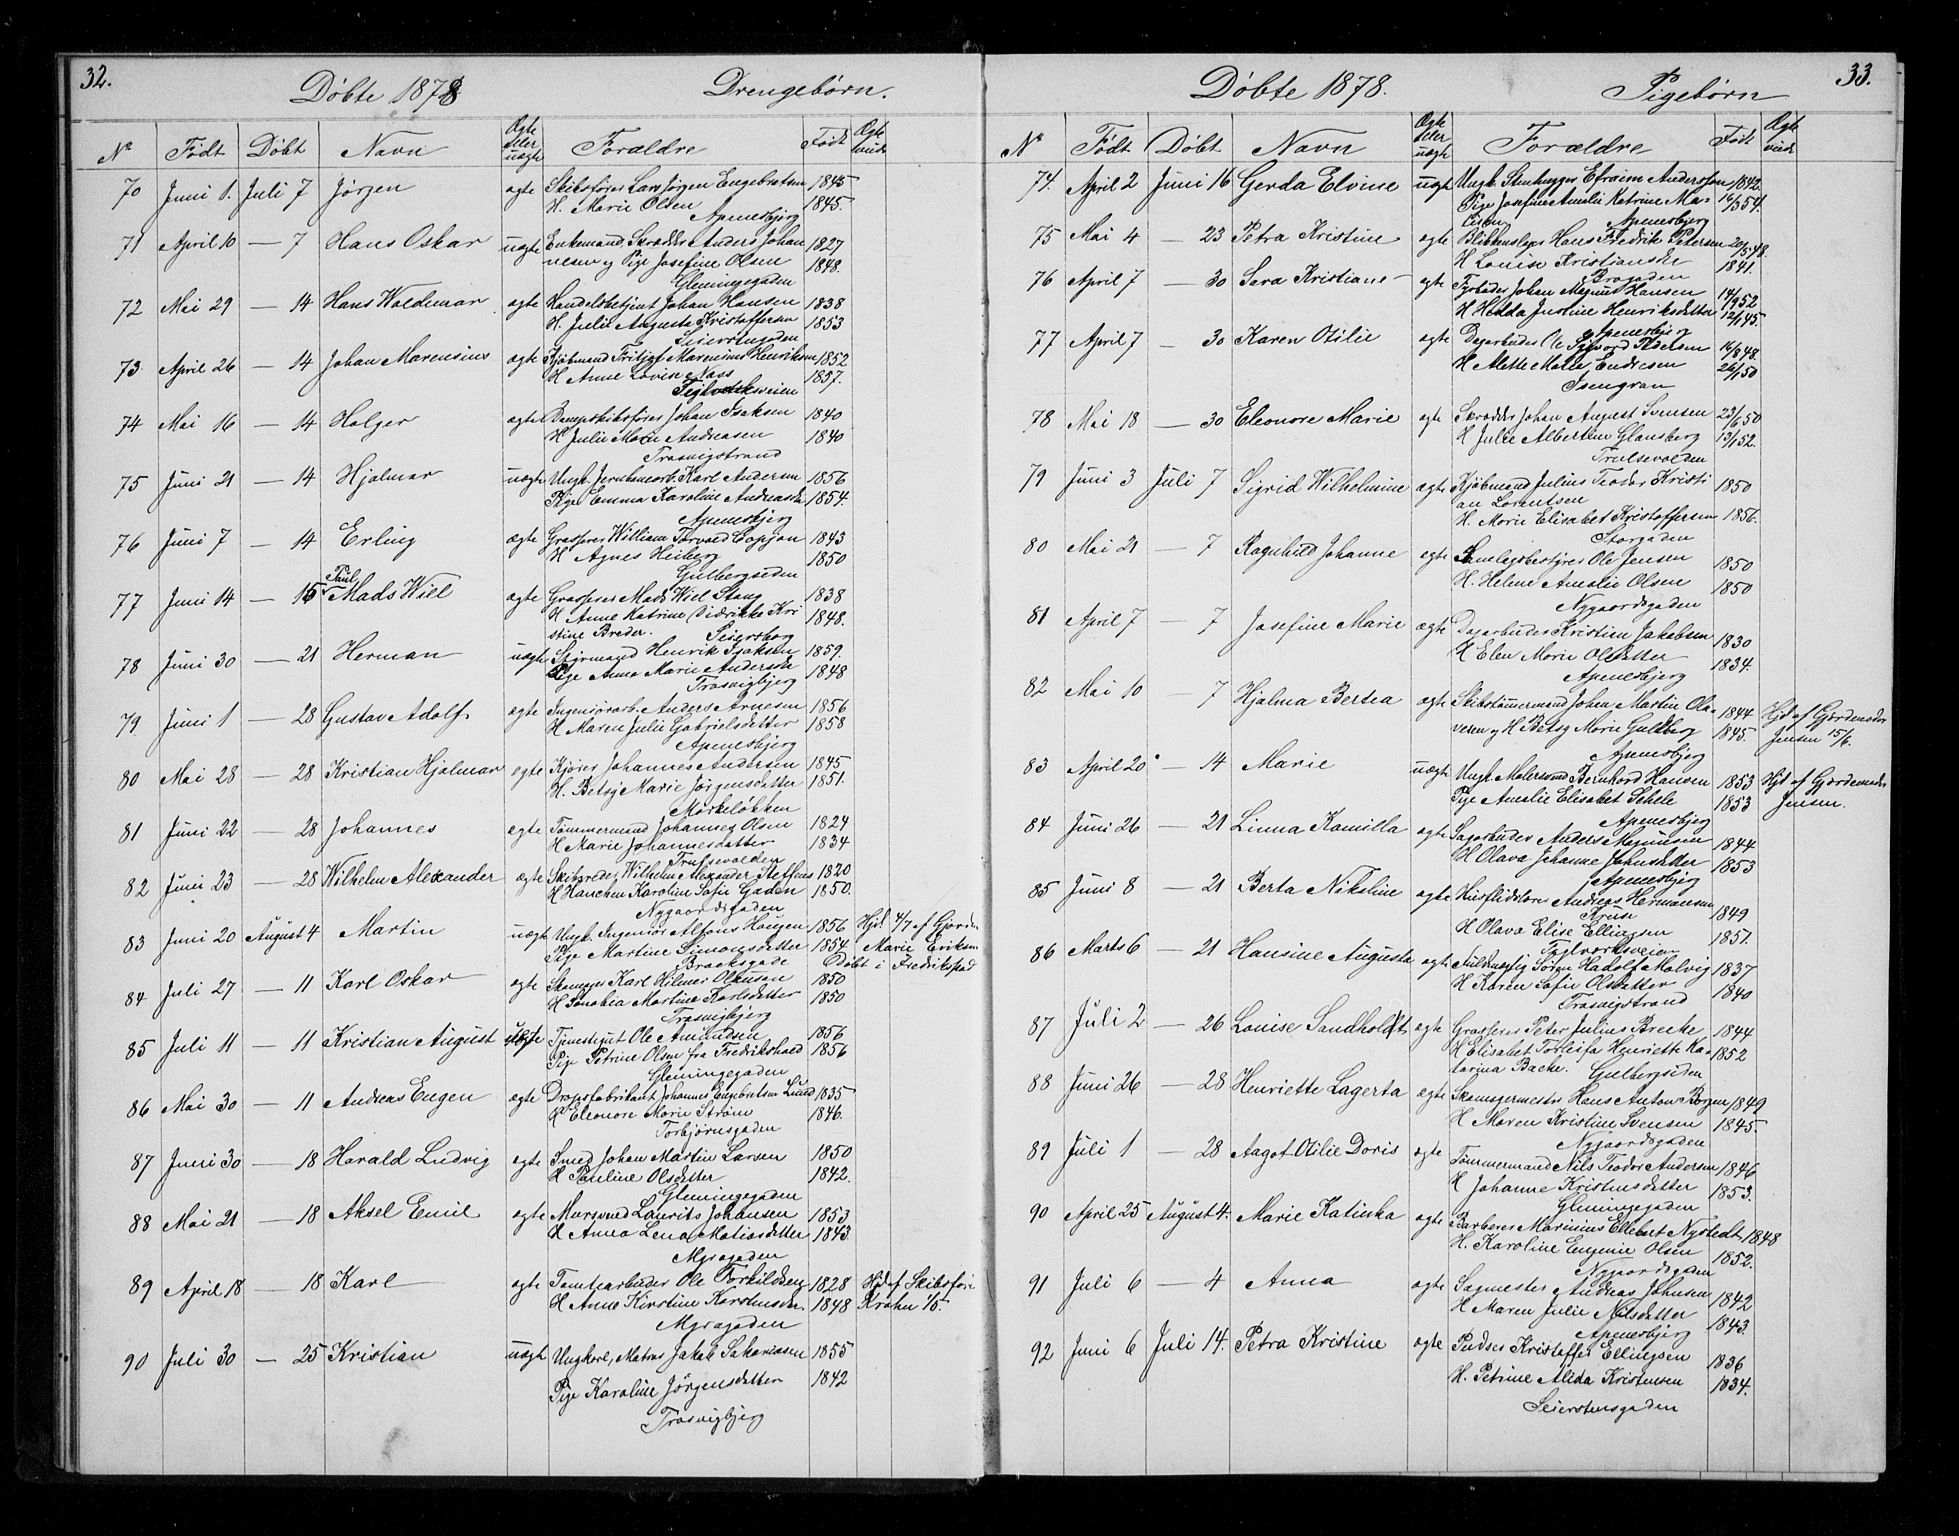 32.
Døbte 1878 Drengebørn.
No Født Døbt Navn Ægte eller uægte Forældre Født
70 Juni 1. Juli 7 Jörgen ægte Skibsfører Lars Jörgen Engebretsen 1845
H. Marie Olsen 1845
Apenesbjerg
71 April 10 — 7 Hans Oskar uægte Enkemand, Skrædder Anders Johan 1827
nesen og Pige Josefine Olsen 1848.
Glemingegaden
72 Mai 29 — 14 Hans Waldemar ægte Handelsbetjent Johan Hansen 1838
H. Julie Auguste Kristoffersen 1853
Seierstensgaden
73 April 26 — 14 Johan Marensius ægte Kjøbmand Fritjof Marensius Henriksen 1852
H Anne Lovise Næss 1857.
Teglverksveien
74 Mai 16 — 14 Holger ægte Dampskibsfører Johan Isaksen 1840
H Julie Marie Andreasen 1840
Trosvigstrand
75 Juni 21 — 14 Hjalmar uægte Ungk. Jernbanearb. Karl Andersen 1856
Pige Emma Karoline Andreasdt 1854.
Apenesbjerg
76 Juni 7 — 14 Erling ægte Grosserer William Torvald Coppjon 1843
H Agnes Heiberg 1850
Gulbergsiden
77 Juni 14 — 15 Paul Mads Wiel ægte Grosserer Mads Wiel Stang 1838
H Anne Katrine Didrikke Kri 1848.
stine Breder. Seiersborg
78 Juni 30 — 21 Herman uægte Styrmand Henrik Isaksen 1859.
Pige Anna Marie Andersen 1848
Trosvigbjerg
79 Juni 1 — 28 Gustav Adolf ægte Ingeniørarb. Anders Arnesen 1856
H Maren Julie Gabrielsdatter 1858
Apenesbjerg
80 Mai 28 — 28 Kristian Hjalmar ægte Kjører Johannes Andersen 1845
H. Betsy Marie Jörgensdatter 1851.
Mørkeløkken
81 Juni 22 — 28 Johannes ægte Tømmermand Johannes Olsen 1824
H Marie Johannesdatter 1834
Trulsevolden
82 Juni 23 — 28 Wilhelm Alexander ægte Skibsreder Wilhelm Alexander Steffens 1820
H Hanchen Karoline Sofie Gaden 1850.
Nygaardsgaden
83 Juni 20 August 4 Martin uægte Ungk. Ingeniør Alfons Haugen 1856 Hjd. 4/7 af Gjorde
Pige Martine Simonsdatter 1854 Marie Eriksen
Brocksgade Døbt i Fredriksstad
84 Juli 27 — 11 Karl Oskar ægte Skomager Karl Hilmer Olausen 1850
H Senobia Martine Karlsdatter 1850
Trosvigbjerg
85 Juli 11 — 11 Kristian August uægte Tjenestegut Ole Amundsen 1856
Pige Petrine Olsen fra Fredrikshald 1856
Glemingegaden
86 Mai 30 — 11 Andreas Eugen ægte Dragsfabrikant Johannes Engebretsen Lund 1835
H Eleonore Marie Strøm 1846.
Torbjørnsgaden
87 Juni 30 — 18 Harald Ludvig ægte Smed Johan Martin Larsen 1850
H Pauline Olsdatter 1842.
Glemingegaden
88 Mai 21 — 18 Aksel Emil ægte Mursvend Laurits Johansen 1853
H Anna Lena Matiasdatter 1843
Myragaden
89 April 18 — 18 Karl ægte Tomtearbeider Ole Torkildsen 1828 Hjd af Skibsfører
H Anne Kirstine Karstensdr. 1848 Krohn 1/5.
Myragaden
90 Juli 30 — 25 Kristian uægte Ungkarl, Matros Jakob Sakariasen 1855
Pige Karoline Jörgensdatter 1842
Trosvigbjerg
33.
Døbte 1878. Pigebørn
No Født Døbt Navn Ægte eller uægte Forældre Født
74. April 2 Juni 16 Gerda Elvine uægte Ungk. Stenhugger Efraim Andersson 1842.
Pige Josefine Amalie Katrine Ma-
Apenesbjerg
75 Mai 4 — 23 Petra Kristine ægte Blikkenslager Hans Fredrik Petersen 20/5 48.
H Louise Kristiansdtr 1841.
Brogaden
76 April 7 — 30 Sara Kristiane ægte Fyrbøder Johan Magnus Hansen 14/9 52
H Hedda Justine Henriksdatter 12/1 45.
Apenesbjerg
77 April 7 — 30 Karen Otilie ægte Dagarbeider Ole Sivord Pedersen 16/8 48.
H Mette Maria Endresen 26/1 50
Isengran
78 Mai 18 — 30 Eleonore Marie ægte Skrædder Johan August Svensen 23/6 50
H Julie Albertine Glansberg 13/1 52.
Trulsevolden
79 Juni 3 Juli 7 Sigrid Wilhelmine ægte Kjøbmand Julius Teodor Kristi 1850
an Lorentsen
H. Marie Elisabet Kristoffersen 1856.
Storgaden
80 Mai 21 — 7 Ragnhild Johanne ægte Samlagsbestyrer Ole Jensen 1850
H. Helene Amalie Olsen 1850
Nygaardsgaden
81 April 7 — 7 Josefine Marie ægte Dagarbeider Kristian Jakobsen 1830
H Elen Marie Olsdatter 1834.
Apenesbjerg
82 Mai 10 — 7 Hjalma Bertea ægte Skibstømmermand Johan Martin Ola- 1844 Hjd af Gjordemoder
vesen og H Betsy Marie Guldberg 1845. Jensen 15/6.
Apenesbjerg
83 April 20 — 14 Marie uægte Ungk. Malersvend Bernhard Hansen 1853 Hjd af Gjordemoder
Pige Amalie Elisabet Schele 1853 Jensen.
Apenesbjerg
84 Juni 26 — 21 Linna Kamilla ægte Sagarbeider Anders Magnusen 1844
H Olava Johanne Johnsdatter 1853
Apenesbjerg
85 Juni 8 — 21 Berta Nikoline ægte Husflidslærer Andreas Hermansen
Krusn 1849
H Olava Elise Ellingsen 1851.
Teglverksveien
86 Marts 6 — 21 Hansine Augusta ægte Søren Hadolf Malvig 1837
H Karen Sofie Olsdatter 1840
Trosvigstrand
87 Juli 2 — 26 Louise Sandholdt ægte Grosserer Peter Julius Brecke 1844
H Elisabet Torleifa Henriette Ka- 1852
tarina Backe. Gulbergsiden
88 Juni 26 — 28 Henriette Lagerta ægte Skomagermester Hans Anton Borgen 1849
H Maren Kristine Svensen 1845.
Nygaardsgaden
89 Juli 1 — 28 Aagot Otilie Doris ægte Tømmermand Nils Teodor Andersen 1846
H Johanne Kristensdatter 1853.
Glemingegaden
90 April 25 August 4. Marie Katinka ægte Barberer Marinius Ellebert Nystedt 1848
H. Karoline Eugenie Olsen 1852.
Nygaardsgaden
91 Juli 6 — 4 Anna ægte Sagmester Andreas Johnsen 1842
H Maren Julie Nilsdatter 1843.
Apenesbjerg
92 Juni 6 Juli 14. Petra Kristine ægte Pudser Kristoffer Ellingsen 1836
H. Petrine Alida Kristensen 1834.
Seierstensgaden